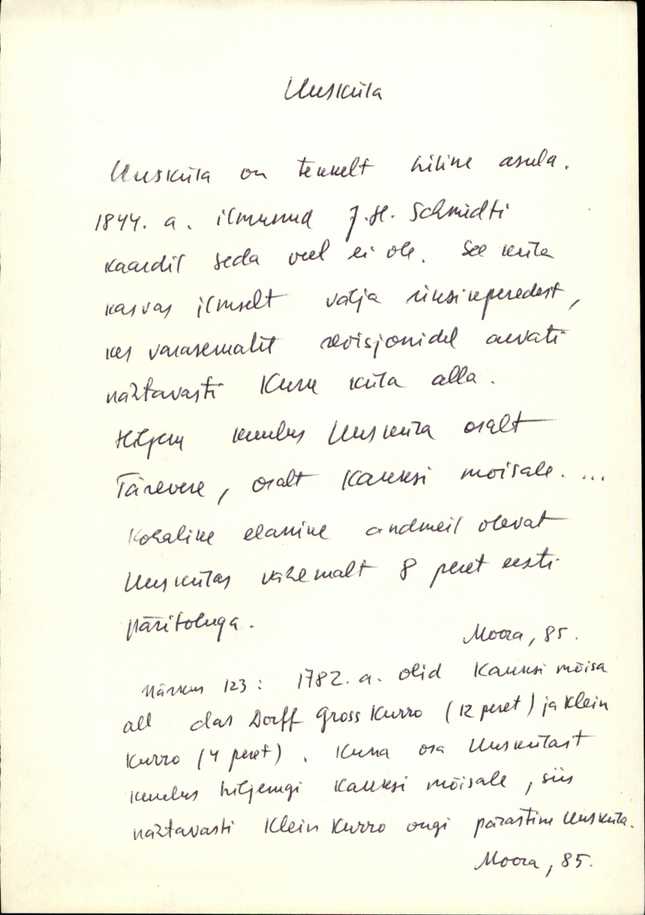 Uusküla
Uusküla on tervelt hiline asula.
1844. a. ilmunud J. H. Schmidti
kaardil seda veel ei ole. See küla
kasvas ilmselt välja üksikperedest,
kes varasematil revisjonidel arvati
nähtavasti Kuru küla alla.
Hiljem kuulus Uusküla osalt
Tärevere, osalt Kauksi mõisale. ...
Kohalike elanike andmeil olevat
Uuskülas vähemalt 8 peret eesti
päritoluga.
Moora, 85.
Märkus 123: 1782. a. olid Kauksi mõisa
all das Dorff Gross Kurro (12 peret) ja Klein
Kurro (4 peret). Kuna osa Uuskülast
kuulus hiljemgi Kauksi mõisale, siis
nähtavasti Klein Kurro ongi pärastine Uusküla.
Moora, 85.